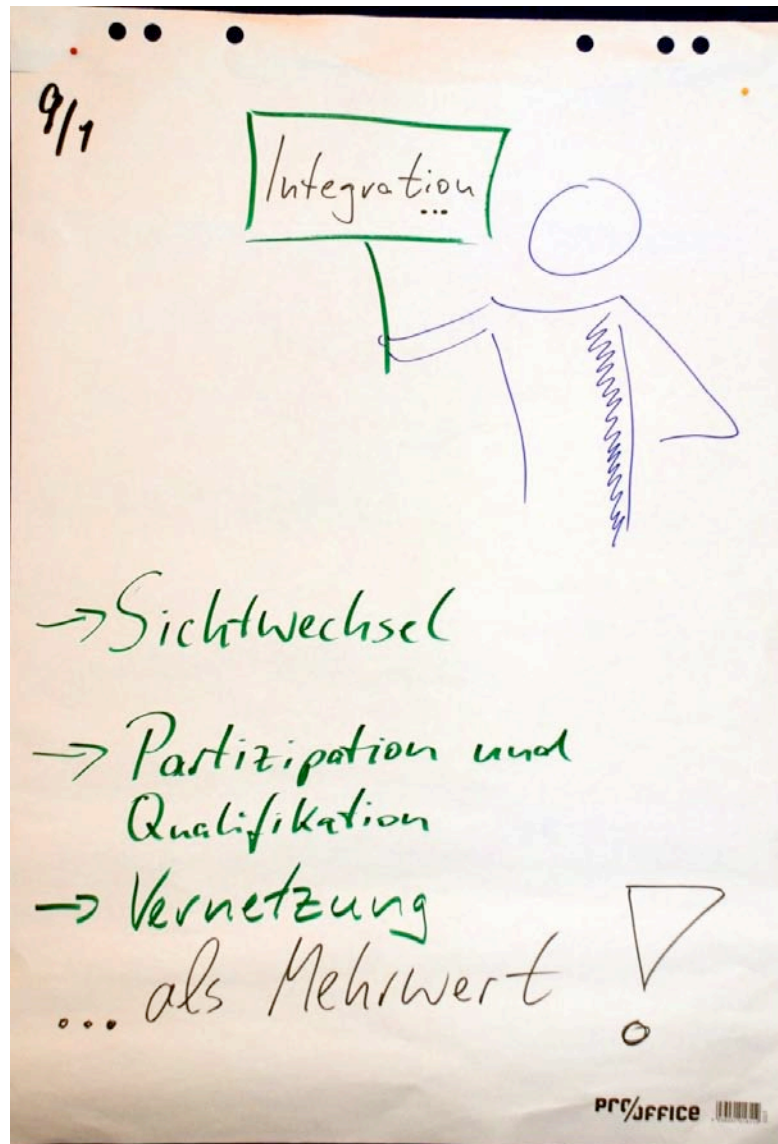 9/1
Integration
...
→ Sichtwechsel
→ Partizipation und
Qualifikation
→ Vernetzung
... als Mehrwert !
Pro/office